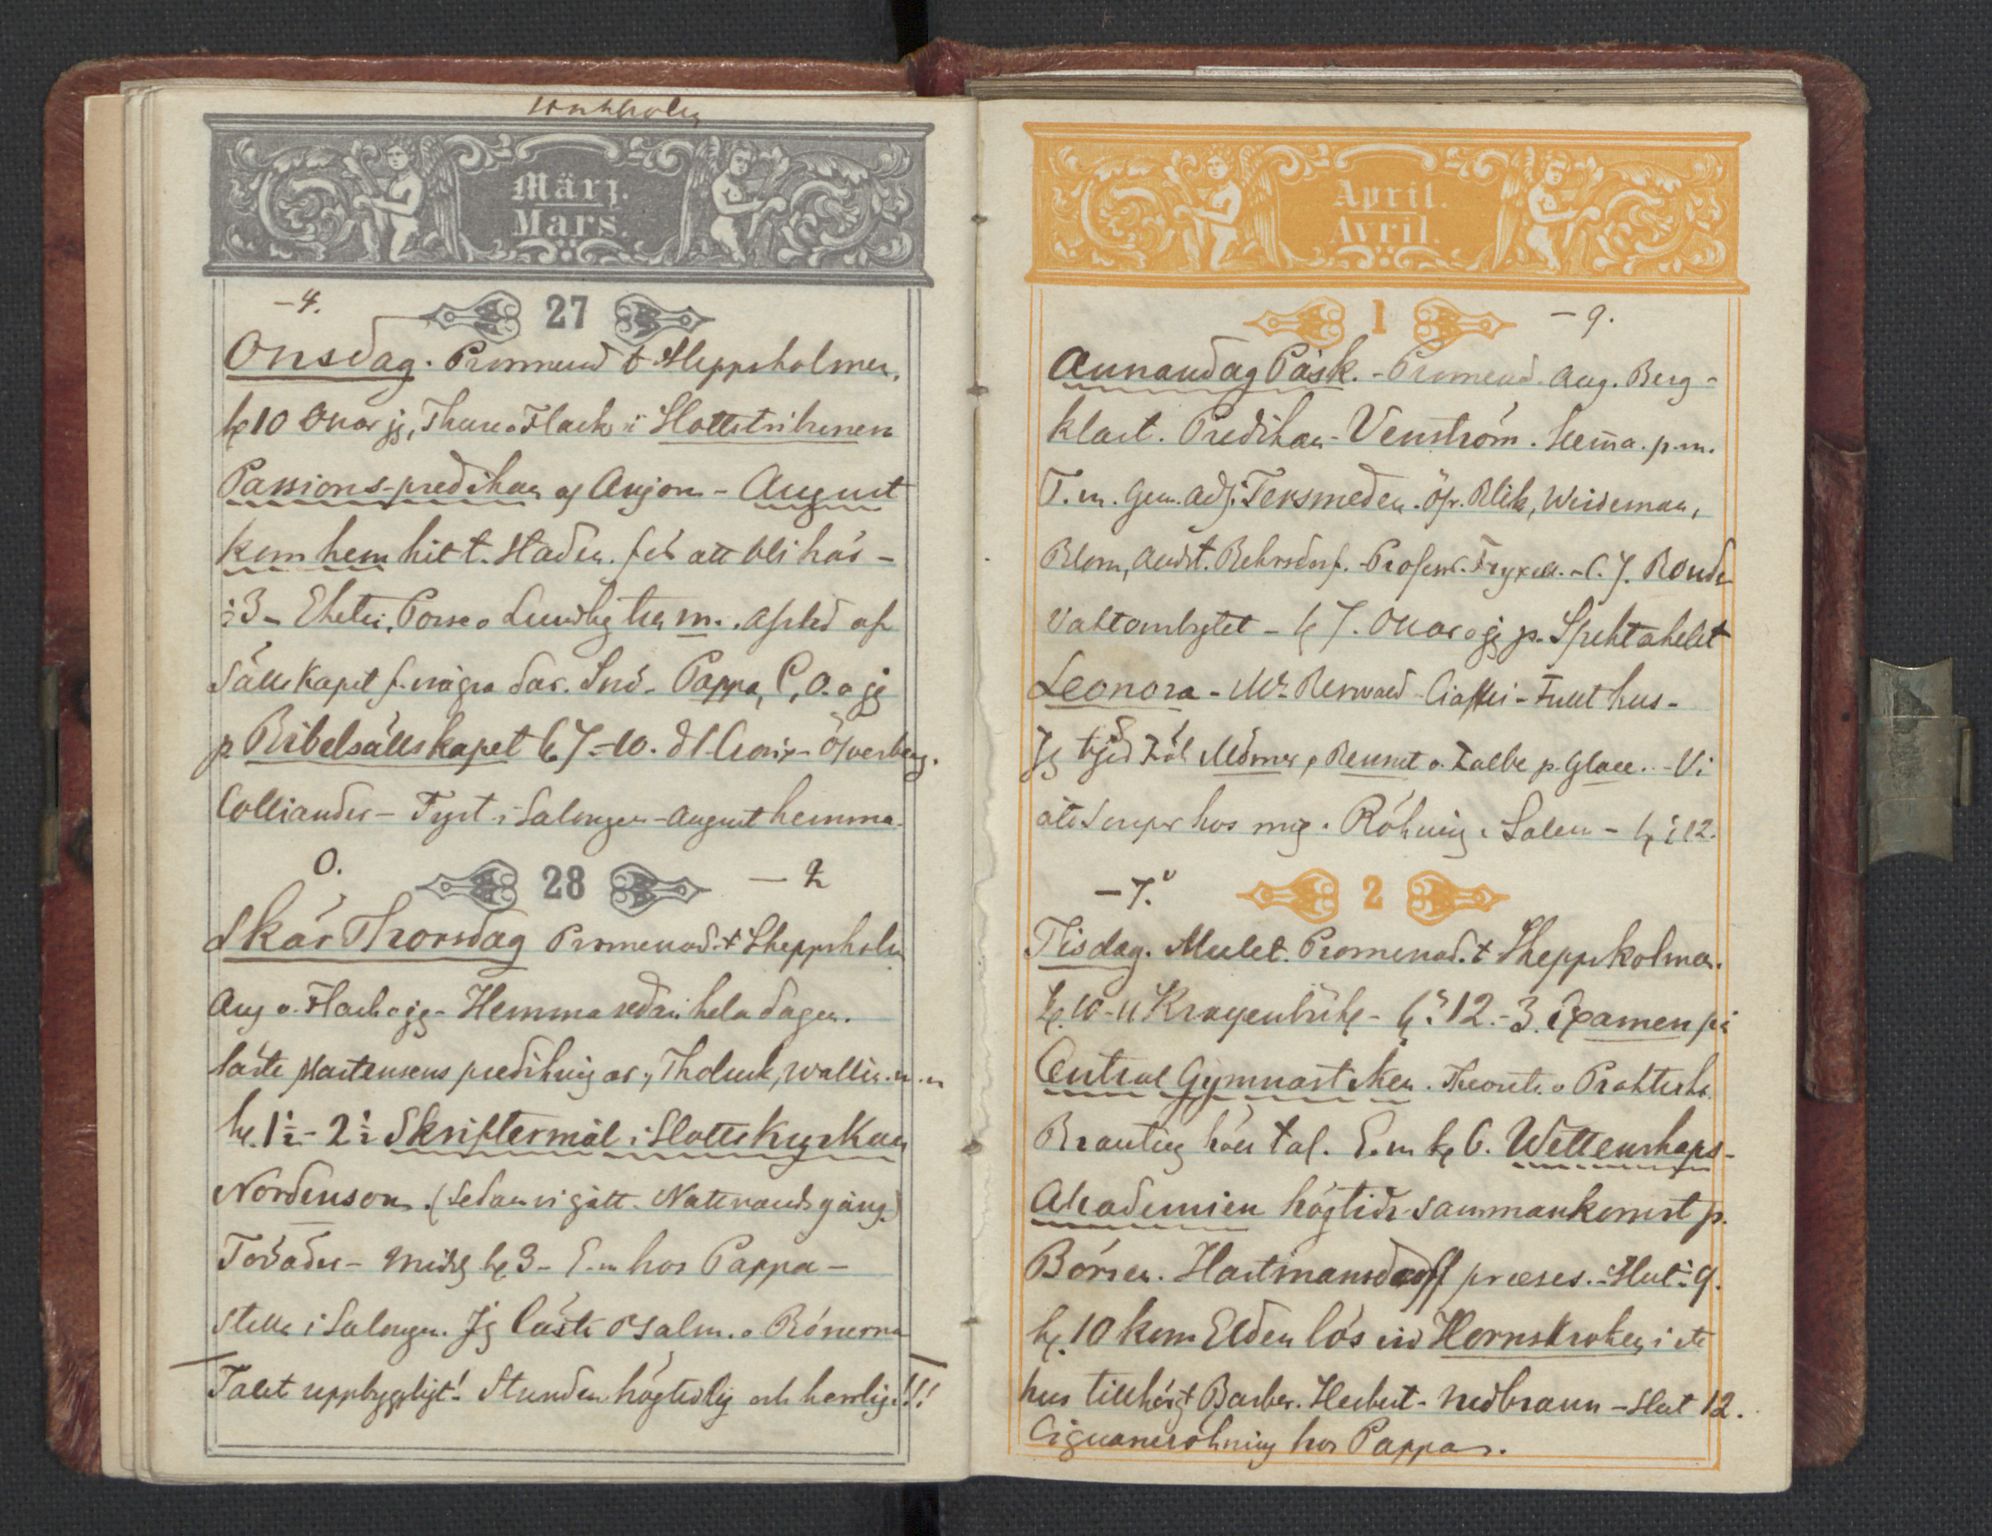 März.
Mars.
-4.
27
Onsdag. Promenad t Skeppsholmen,
kl 10 Oscar jg, Thure o Flach i Slottstribunen
Passions-predikan af Anjou - August
kom hem hit t. staden. för att bli här -
Porse o Lundbg hem. Afsked af
Sällskapet f. några dar. Snö - Pappa, C, O. o jg
p Bibelsällskapet kl 7-10. Öfverberg.
Colliander - Tyst i Salongen - August hemma.
0.
28
- 2
Skär Thorsdag Promenad t Skeppsholm
Aug o. Flach o jg - Hemma sedan hela dagen.
läste Martensens predikningar, Tholuck, Wallin m. m
kl. 1½ - 2½ Skriftermål i Slottskyrkan
Nordenson. (Sedan vi gått Nattvardsgång)
Tovåder - Middg kl 3 - E.m hos Pappa -
Stilla i Salongen. Jg läste Psalm. o Bönerna
Talet uppbyggligt! Stunden högtidlig och herrlig!!!
April.
Avril.
1
- 9.
Annandag Påsk. - Promenad. Aug. Berg -
klart. Predikan - Venström. Hemma. p.m.
T. m. Gen. Adj. Tersmeden. Öfv. Blik, Weideman,
Blom, Behrsdorf. - Professor Fryxell. - C. J. Bonde
Vaktombytet - kl 7. Oscar o jg p. Spektaklet
Leonora - Mr Berwald - Ciaffei - Fullt hus -
Jg bjöd Löt Mörner, Bennet o. Kalbe p. Glace. - Vi
åto Super hos mig. Rökning i Salen - kl ½ 12.
-7.
2
Tisdag. Mulet. Promenad. t Skeppsholmen.
kl. 10-11 Kragenbühl - kl. 12.-3. Examen på
Central Gymnastiken. Theoretisk o Praktisk.
Branting höll tal. E.m kl 6. Wettenskaps-
Akademien högtids sammankomst p.
Börsen. Hartmansdorff præses. - Slut ½ 9.
kl. 10 kom Elden lös vid Hornskroken i ett
hus tillhörgt Barber. Herbert - nedbrann - Slut 12.
Cigarrrökning hos Pappa.